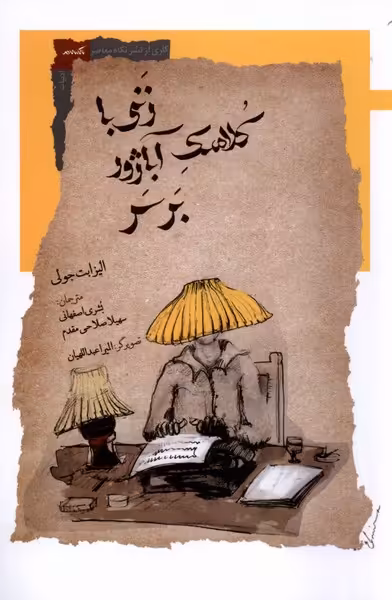 کاری از نشر نگاه معاصر
ادبیات
زنی با
کلاهکِ آباژور
بَر سَر
الیزابت جولی
مترجمان:
بُشری اصفهانی
سهیلا صلاحی مقدم
تصویرگر: المیرا عبدالهیان